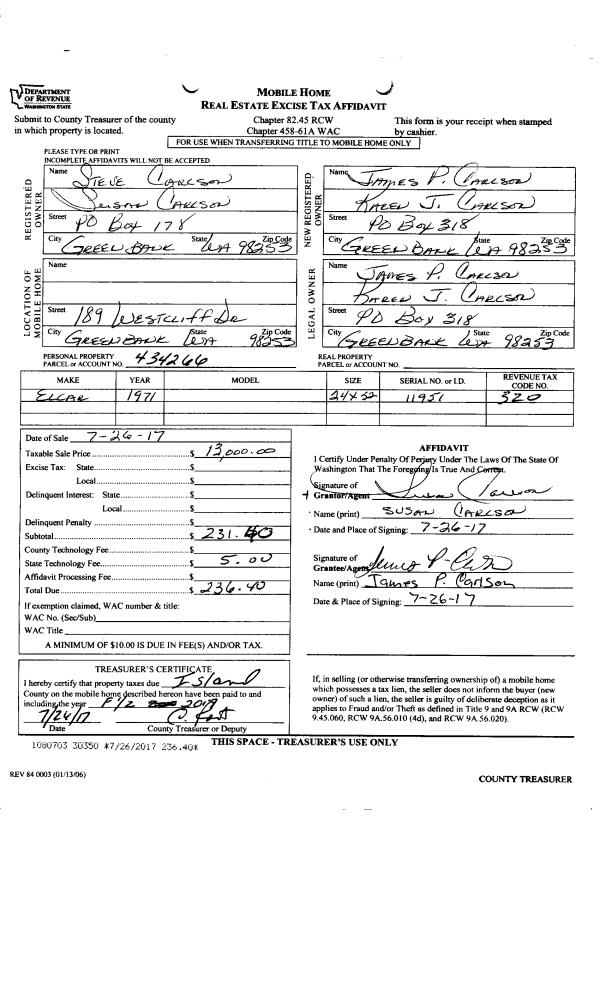 DEPARTMENT
OF REVENUE
WASHINGTON STATE
MOBILE HOME
REAL ESTATE EXCISE TAX AFFIDAVIT
Submit to County Treasurer of the county
in which property is located.
Chapter 82.45 RCW
Chapter 458-61A WAC
This form is your receipt when stamped
by cashier.
FOR USE WHEN TRANSFERRING TITLE TO MOBILE HOME ONLY
PLEASE TYPE OR PRINT
INCOMPLETE AFFIDAVITS WILL NOT BE ACCEPTED
REGISTERED OWNER
Name STEVE CARLSON
SUSAN CARLSON
Street PO BOX 178
City State Zip Code
GREENBANK WA 98253
NEW REGISTERED OWNER
Name JAMES P. CARLSON
KAREN J. CARLSON
Street PO BOX 318
City State Zip Code
GREENBANK WA 98253
LOCATION OF MOBILE HOME
Name
Street 189 WESTCLIFF DR
City State Zip Code
GREENBANK WA 98253
LEGAL OWNER
Name JAMES P. CARLSON
KAREN J. CARLSON
Street PO BOX 318
City State Zip Code
GREENBANK WA 98253
PERSONAL PROPERTY
PARCEL or ACCOUNT NO. 434266
REAL PROPERTY
PARCEL or ACCOUNT NO.
MAKE YEAR MODEL SIZE SERIAL NO. or I.D. REVENUE TAX CODE NO.
ELCAR 1971 24X52 11951 320
Date of Sale 7-26-17
Taxable Sale Price $ 13,000.00
Excise Tax: State $
Local $
Delinquent Interest: State $
Local $
Delinquent Penalty $
Subtotal $ 231.40
County Technology Fee $
State Technology Fee $ 5.00
Affidavit Processing Fee $
Total Due $ 236.40
If exemption claimed, WAC number & title:
WAC No. (Sec/Sub)
WAC Title
A MINIMUM OF $10.00 IS DUE IN FEE(S) AND/OR TAX.
AFFIDAVIT
I Certify Under Penalty Of Perjury Under The Laws Of The State Of
Washington That The Foregoing Is True And Correct.
Signature of
Grantor/Agent Susan Carlson
Name (print) SUSAN CARLSON
Date and Place of Signing: 7-26-17
Signature of
Grantee/Agent
Name (print) James P. Carlson
Date & Place of Signing: 7-26-17
TREASURER'S CERTIFICATE
I hereby certify that property taxes due Island
County on the mobile home described hereon have been paid to and
including the year
7/26/17
Date County Treasurer or Deputy
If, in selling (or otherwise transferring ownership of) a mobile home
which possesses a tax lien, the seller does not inform the buyer (new
owner) of such a lien, the seller is guilty of deliberate deception as it
applies to Fraud and/or Theft as defined in Title 9 and 9A RCW (RCW
9.45.060, RCW 9A.56.010 (4d), and RCW 9A.56.020).
1080703 30350 *7/26/2017 236.40*
THIS SPACE - TREASURER'S USE ONLY
REV 84 0003 (01/13/06)
COUNTY TREASURER